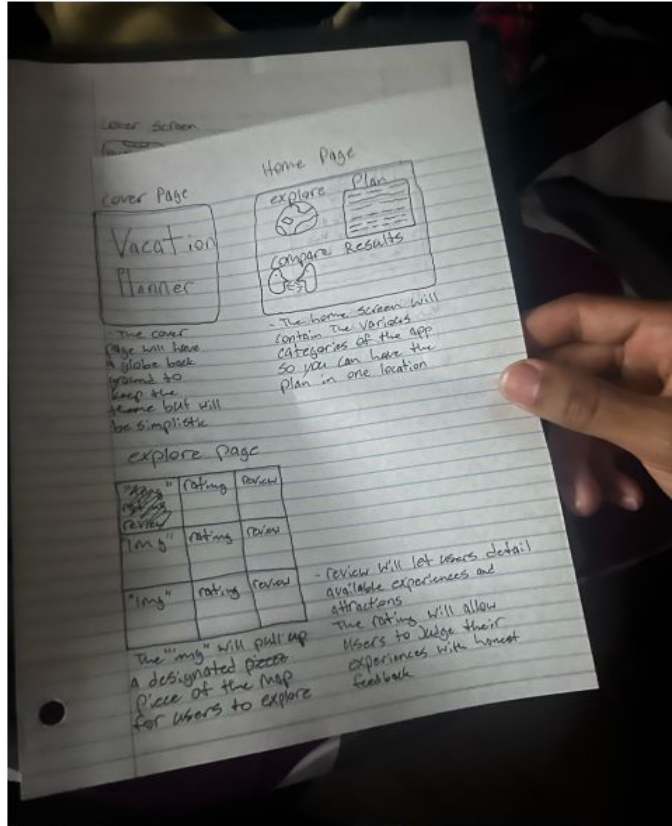 cover screen
Home Page
cover Page
Vacation
Planner
explore
Plan
compare
Results
- The cover
page will have
a globe back
ground to
keep the
theme but will
be simplistic
- The home screen will
contain the various
categories of the app
so you can have the
plan in one location
explore page
rating
review
review
"Img"
rating
review
"Img"
rating
review
The "img" will pull up
a designated piece
piece of the map
for users to explore
- review will let users detail
available experiences and
attractions
The rating will allow
users to judge their
experiences with honest
feedback